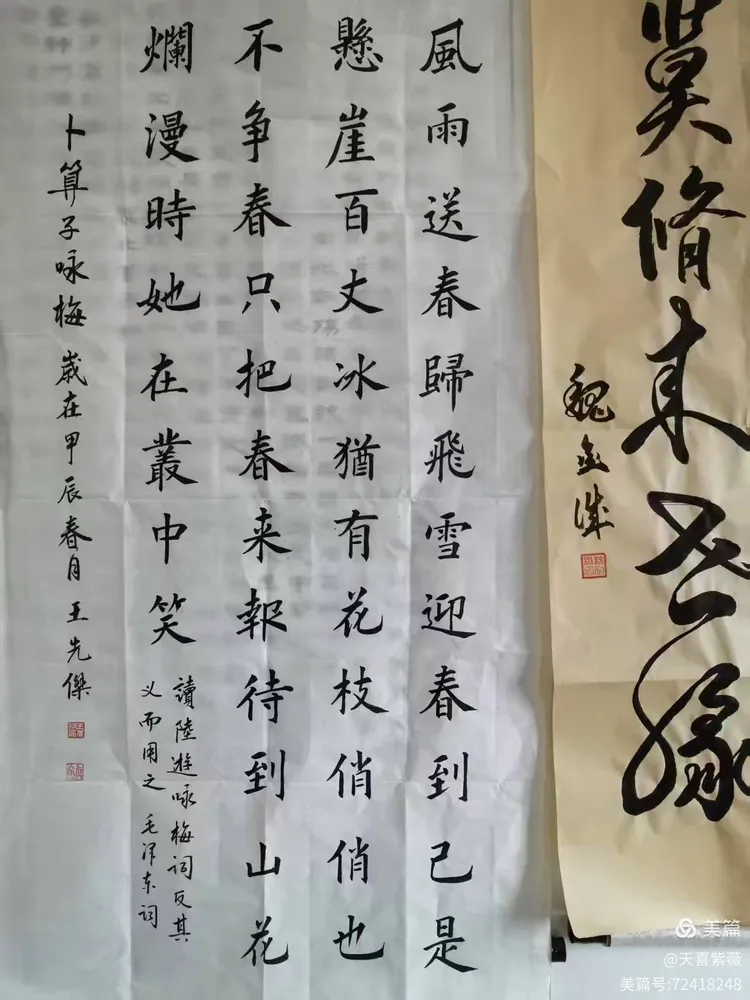 脩来世缘
魏
風雨送春歸飛雪迎春到已是
懸崖百丈冰猶有花枝俏俏也
不争春只把春来報待到山花
爛漫時她在叢中笑
讀陸遊咏梅詞反其
义而用之 毛泽东词
卜算子咏梅 歲在甲辰春月 王先傑
美篇
@天喜紫薇
美篇号:72418248